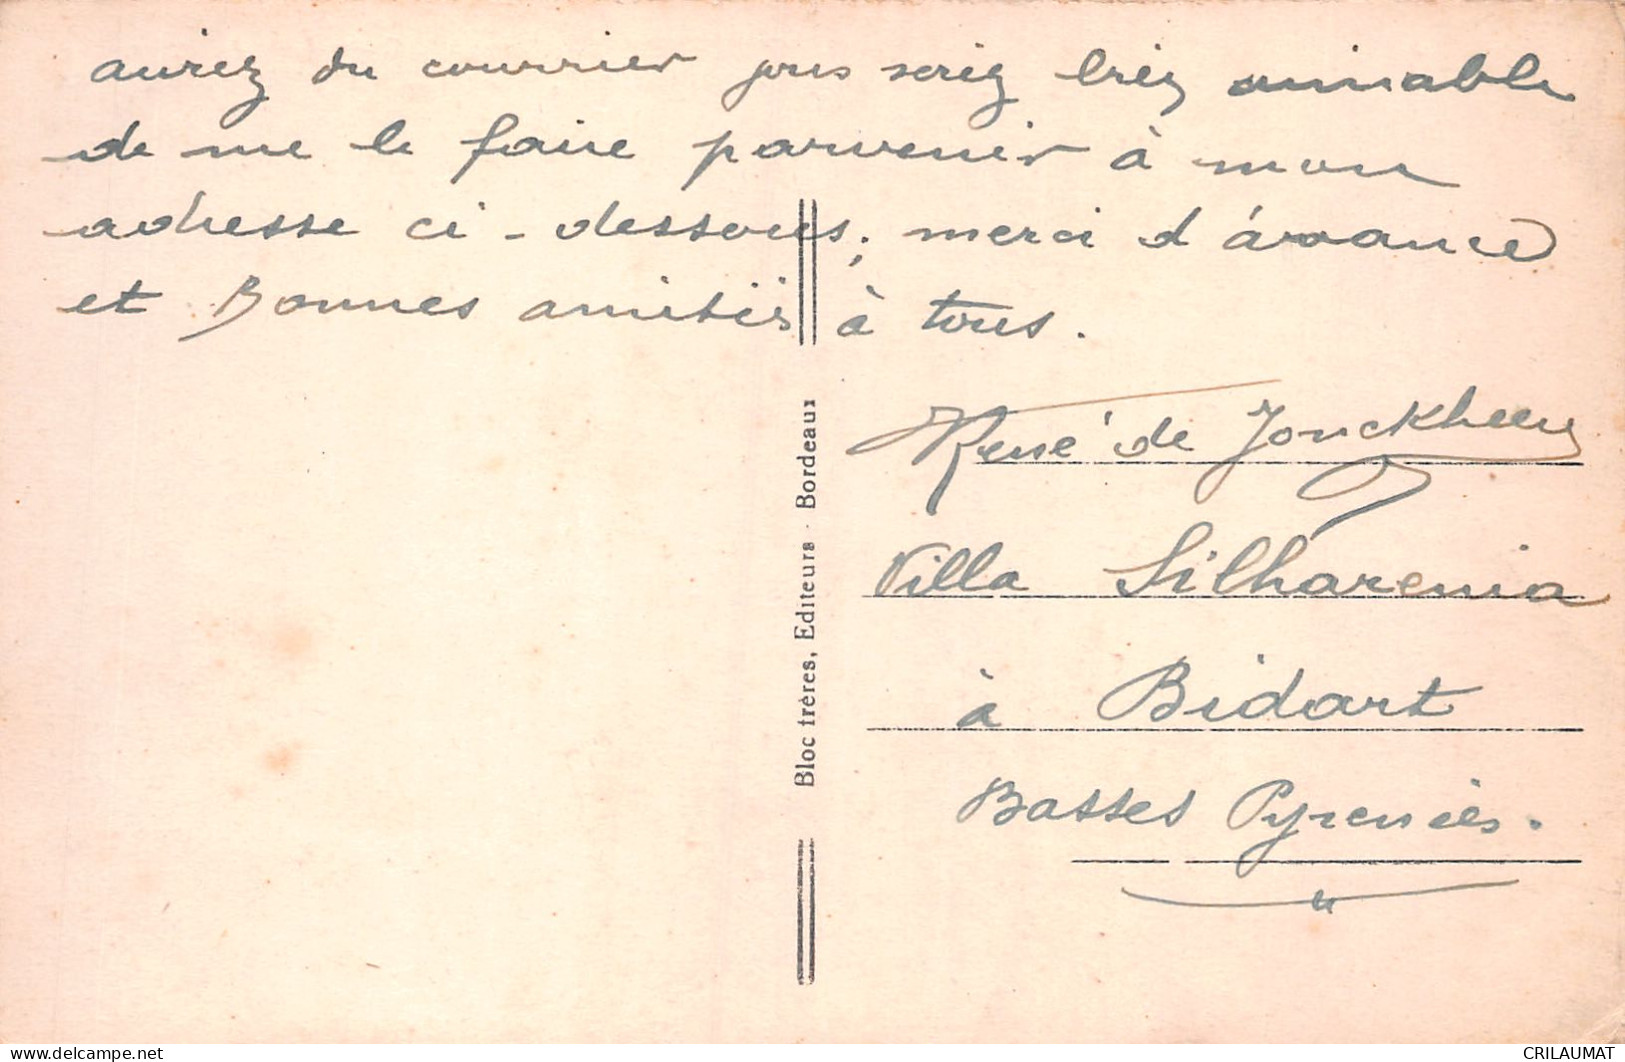 aurez du courrier vous seriez très aimable
de me le faire parvenir à mon
adresse ci-dessous; merci d'avance
et Bonnes amitiés à tous.
René de Jonckheere
Villa Silharenia
à Bidart
Basses Pyrenées.
Bloc frères, Editeurs - Bordeaux
delcampe.net
CRILAUMAT